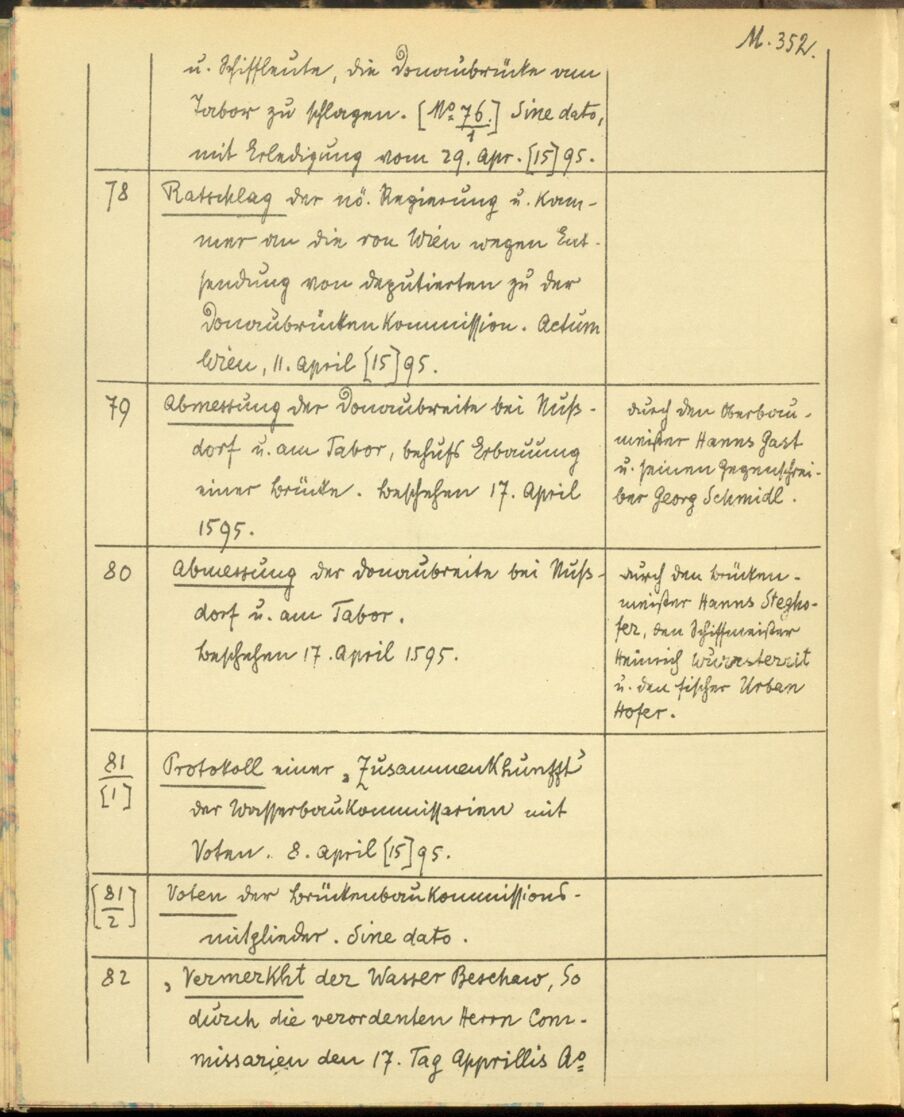 M. 352.
u. Schiffleute, die Donaubrücke am
Tabor zu schlagen. [No. 76./1] Sine dato,
mit Erledigung vom 29. Apr. [15]95.
78 Ratschlag der nö. Regierung u. Kam-
mer an die von Wien wegen Ent-
sendung von Deputierten zu der
Donaubrückenkommission. Actum
Wien, 11. April [15]95.
79 Abmessung der Donaubreite bei Nuß-
dorf u. am Tabor, behufs Erbauung
einer Brücke. Beschehen 17. April
1595.
durch den Oberbau-
meister Hanns Gast
u. seinen Gegenschrei-
ber Georg Schmidl.
80 Abmessung der Donaubreite bei Nuß-
dorf u. am Tabor.
Beschehen 17. April 1595.
durch den Brücken-
meister Hanns Stegho-
fer, den Schiffmeister
Heinrich Wurstezeit
u. den Fischer Urban
Hofer.
81/[1] Protokoll einer „Zusammenkhunfft"
der Wasserbaukommissarien mit
Voten. 8. April [15]95.
[81/2] Voten der Brückenbaukommissions-
mitglieder. Sine dato.
82 „Vermerkht der Wasser Beschaw, So
durch die verordenten Herrn Com-
missarien den 17. Tag Apprillis Ao